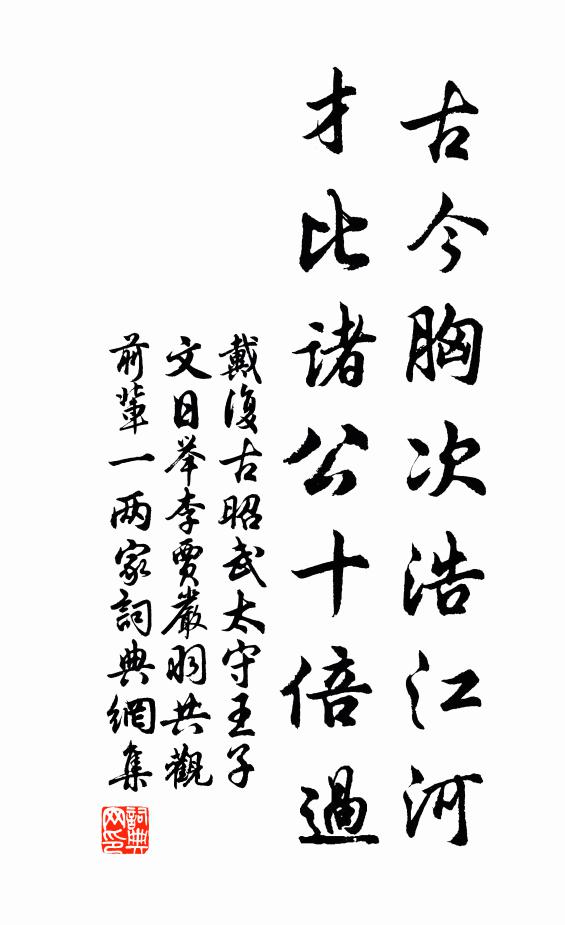 古今胸次浩江河
才比诸公十倍過
戴復古昭武太守王子
文日举李賈嚴羽共觀
前輩一两家詞典網集
詞典网印